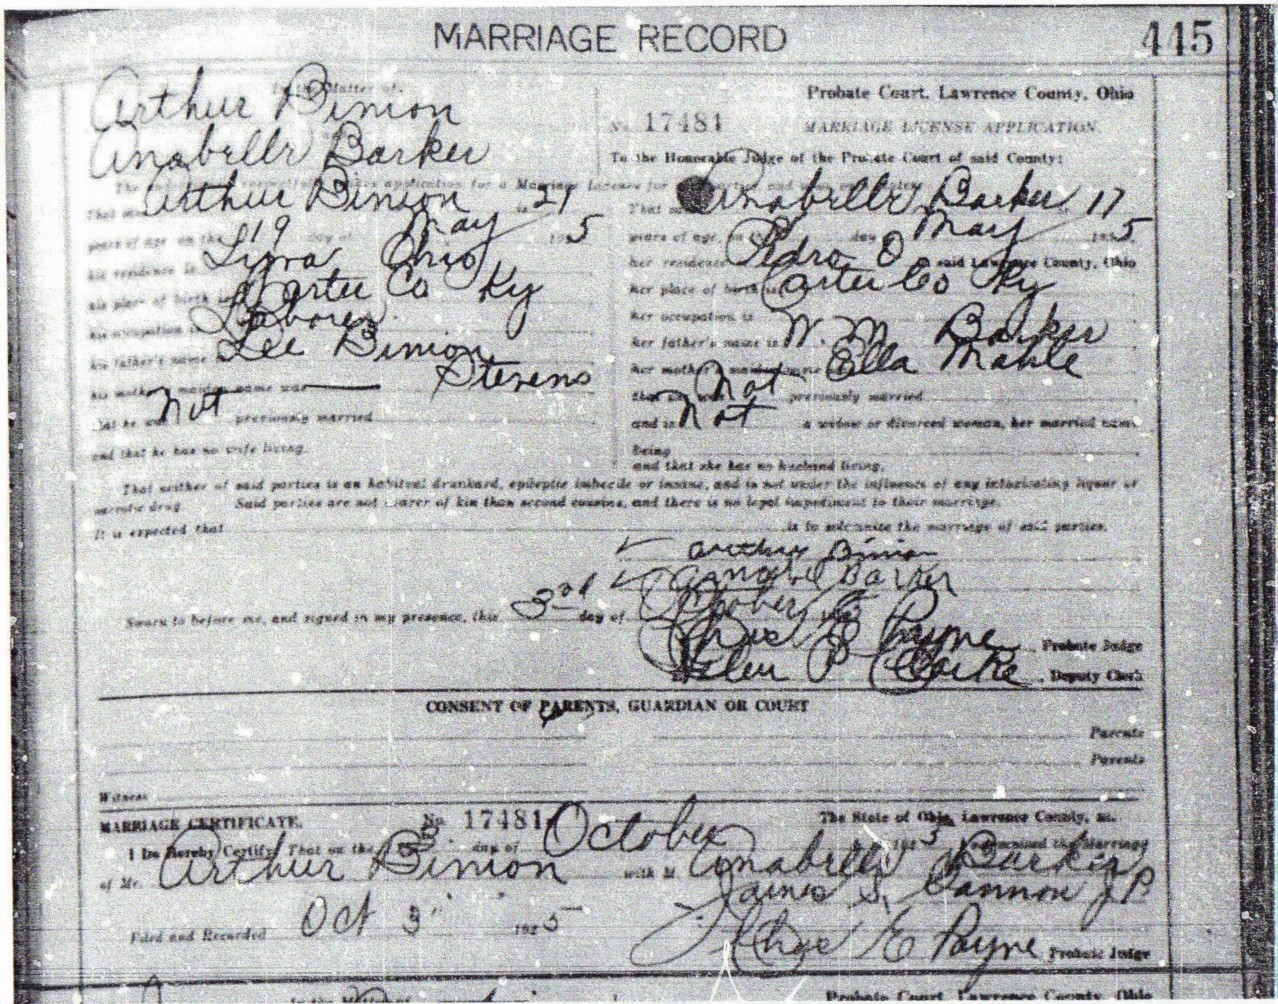 MARRIAGE RECORD
445
In the Matter of
Arthur Binion
and
Anabelle Barker
Probate Court, Lawrence County, Ohio
No. 17481 MARRIAGE LICENSE APPLICATION.
To the Honorable Judge of the Probate Court of said County:
application for a Marriage License for
That Arthur Binion is 21
years of age on the 19 day of May 1925
his residence is Lima Ohio
his place of birth is Carter Co Ky
his occupation is Laborer
his father's name Lee Binion
his mother's maiden name was — Stevens
that he was not previously married
and that he has no wife living.
That Anabelle Barker 17
years of age, on the day May 1925
her residence Pedro O in said Lawrence County, Ohio
her place of birth is Carter Co Ky
her occupation is
her father's name is W M Barker
her mother's maiden name Ella Mable
that she was Not previously married
and is Not a widow or divorced woman, her married name
being
and that she has no husband living.
That neither of said parties is an habitual drunkard, epileptic imbecile or insane, and is not under the influence of any intoxicating liquor or
narcotic drug. Said parties are not nearer of kin than second cousins, and there is no legal impediment to their marriage.
It is expected that is to solemnize the marriage of said parties.
Arthur Binion
Anabel Barker
Sworn to before me, and signed in my presence, this 3rd day of October
Chas E Payne, Probate Judge
Helen P. Clarke, Deputy Clerk
CONSENT OF PARENTS, GUARDIAN OR COURT
Parents
Parents
Witness
MARRIAGE CERTIFICATE. No. 17481 The State of Ohio, Lawrence County, ss.
I Do Hereby Certify That on the 3 day of October 1925 I solemnized the Marriage
of Mr. Arthur Binion with M Anabelle Barker
James S. Cannon J.P.
Filed and Recorded Oct 3" 1925
Chas E Payne Probate Judge
In the Matter of
Probate Court, Lawrence County, Ohio